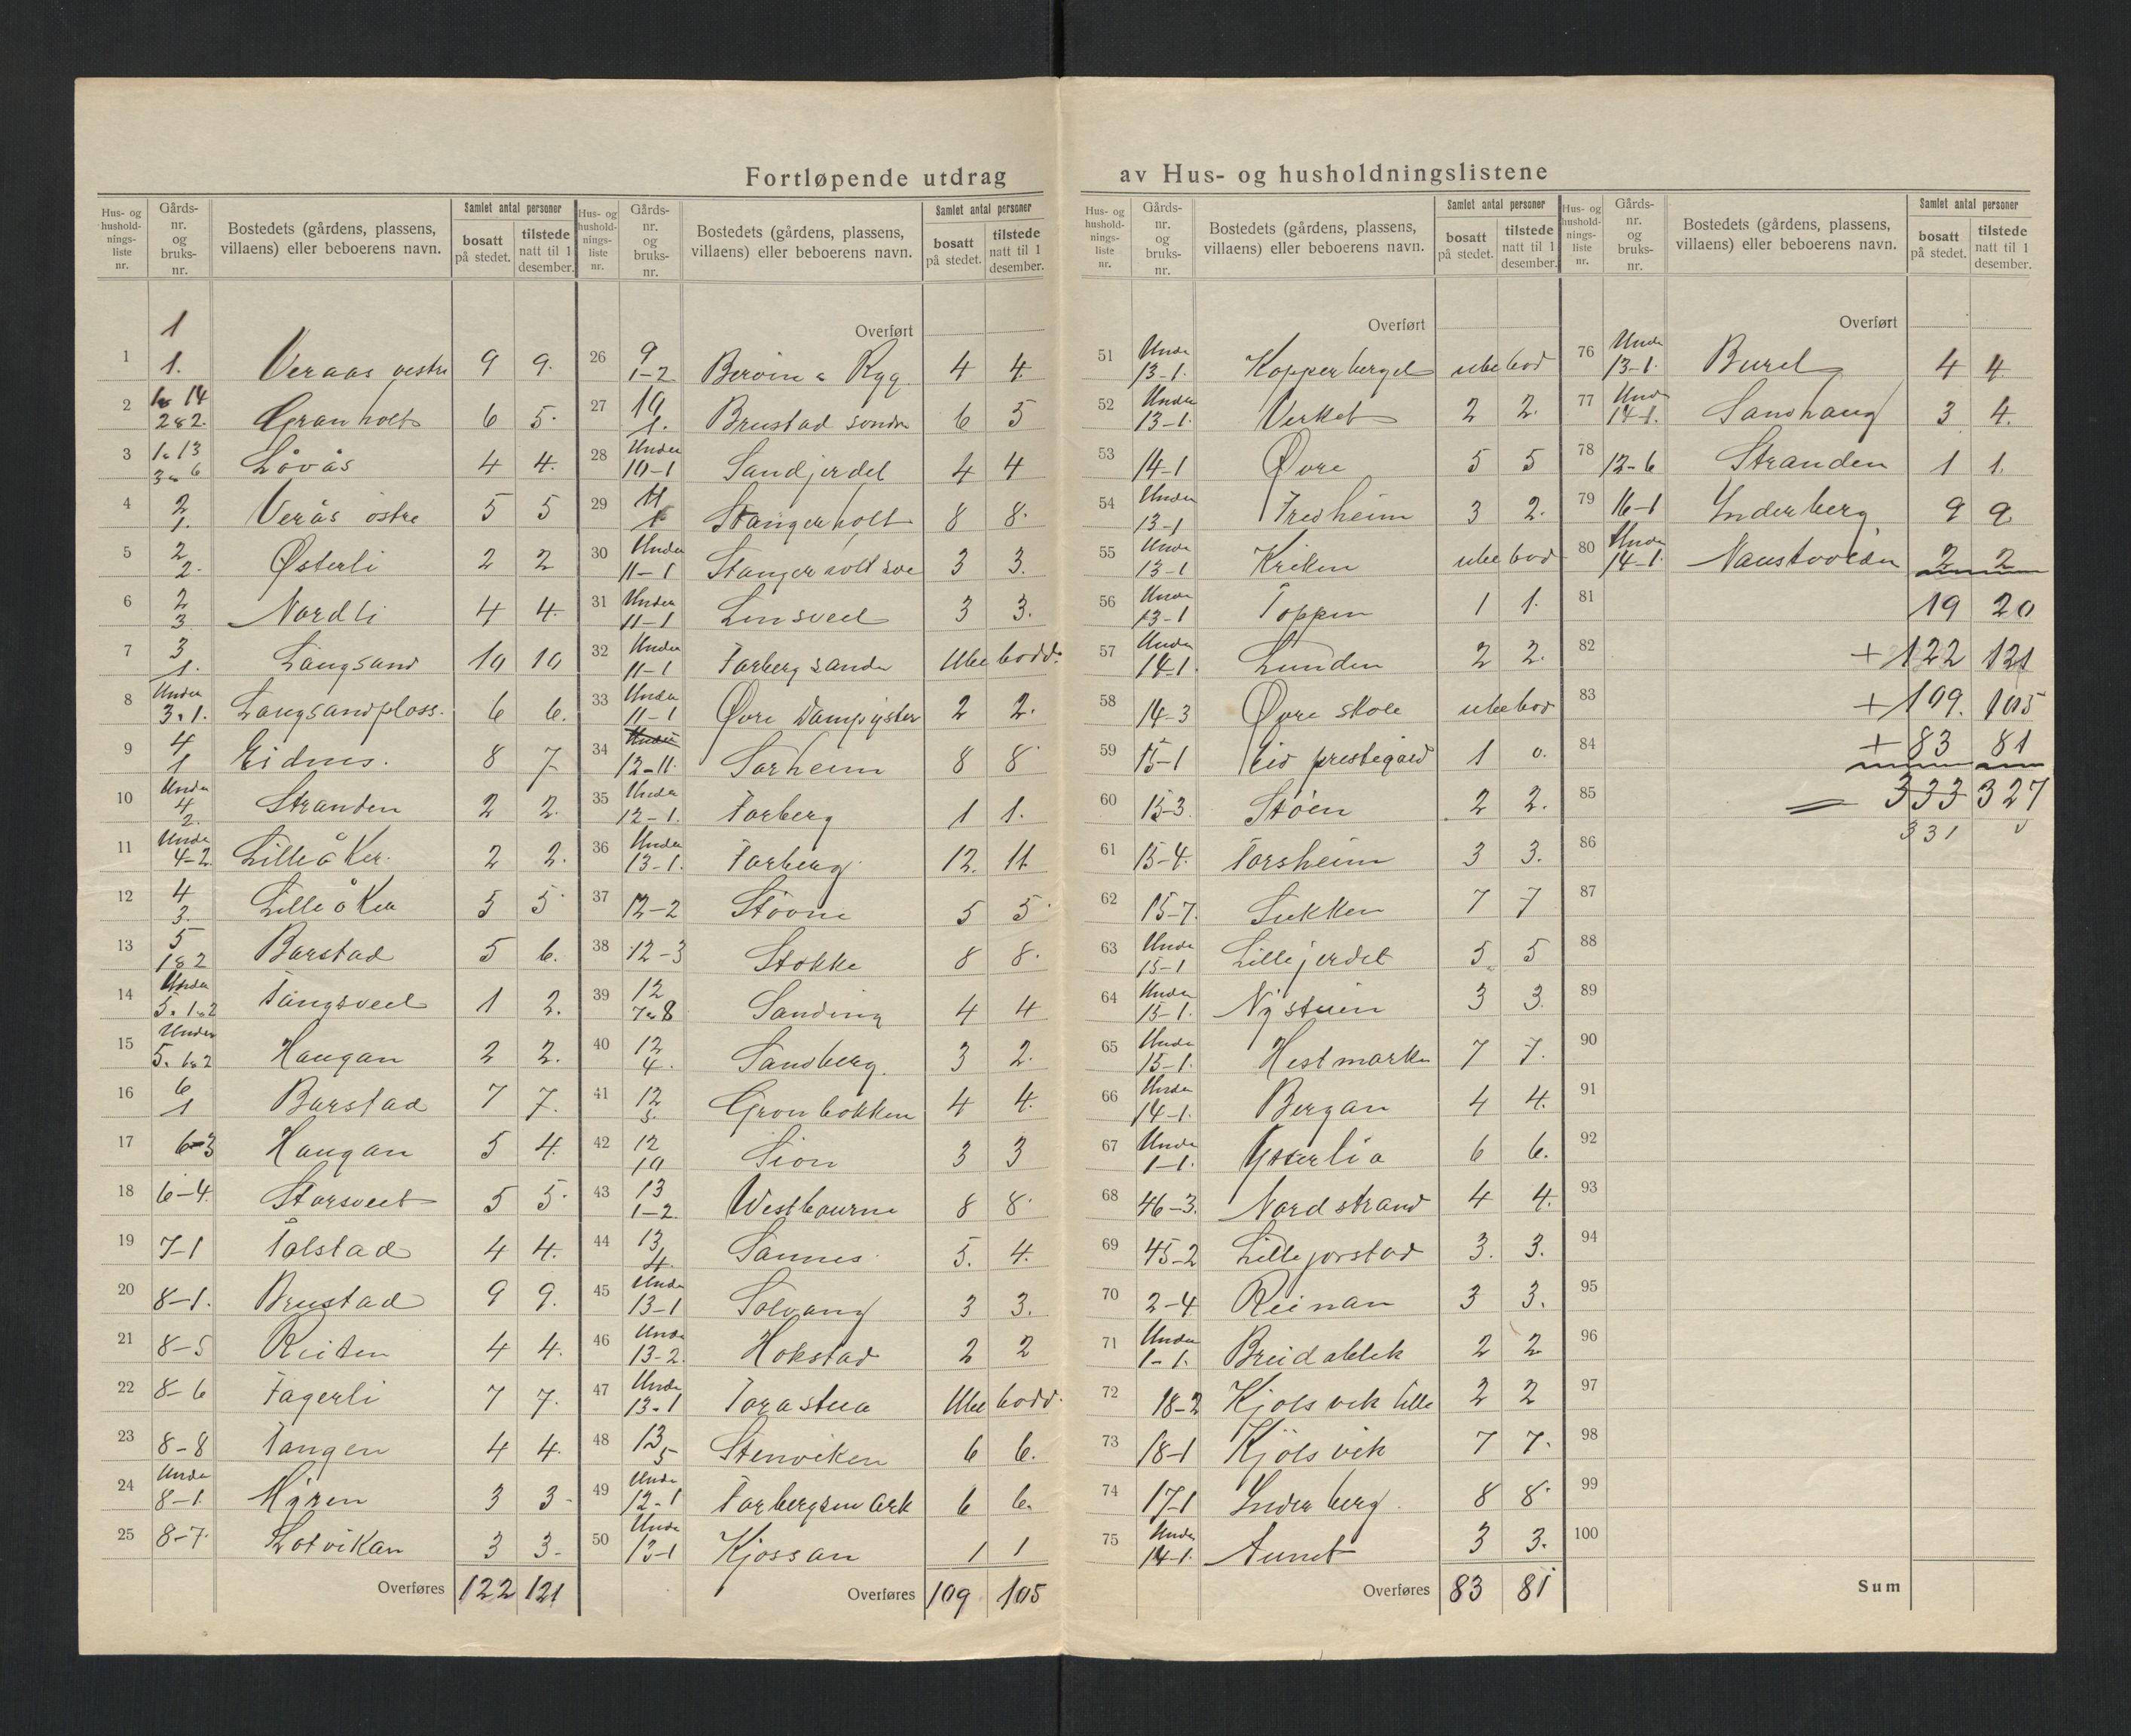 Fortløpende utdrag av Hus- og husholdningslistene
Hus- og hushold-nings-liste nr. | Gårds-nr. og bruks-nr. | Bostedets (gårdens, plassens, villaens) eller beboerens navn. | Samlet antal personer | bosatt på stedet. | tilstede natt til 1 desember.
1 | 1 1. | Veraas vestre | 9 | 9.
2 | 1 & 14 2&2. | Granholt | 6 | 5.
3 | 1 & 13 3 & 6 | Lövås | 4 | 4.
4 | 2 1. | Verås östre | 5 | 5
5 | 2 2. | Østerli | 2 | 2
6 | 2 3 | Nordli | 4 | 4.
7 | 3 1. | Langsand | 10 | 10
8 | Under 3. 1. | Langsandplass. | 6 | 6.
9 | 4 1 | Eidnes. | 8 | 7
10 | Under 4 2. | Stranden | 2 | 2.
11 | Under 4-2 | Lilleåker. | 2 | 2.
12 | 4 3. | Lilleåker | 5 | 5
13 | 5 1&2 | Barstad | 5 | 6.
14 | Under 5. 1&2 | Tangsveet | 1 | 2.
15 | Under 5. 1&2 | Haugan | 2 | 2.
16 | 6 1 | Barstad | 7 | 7.
17 | 6-3 | Haugan | 5 | 4.
18 | 6-4. | Storsveet | 5 | 5.
19 | 7-1 | Tålstad | 4 | 4.
20 | 8-1. | Brustad | 9 | 9.
21 | 8-5 | Reiten | 4 | 4.
22 | 8-6 | Fagerli | 7 | 7.
23 | 8-8 | Tangen | 4 | 4.
24 | Under 8-1 | Myren | 3 | 3-
25 | 8-7. | Lotvikan | 3 | 3-
Overføres 122 121
Hus- og hushold-nings-liste nr. | Gårds-nr. og bruks-nr. | Bostedets (gårdens, plassens, villaens) eller beboerens navn. | Samlet antal personer | bosatt på stedet. | tilstede natt til 1 desember.
Overført
26 | 9 1-2 | Rygg | 4 | 4.
27 | 10 1. | Brustad söndre | 6 | 5
28 | Under 10-1 | Sandjerdet | 4 | 4
29 | 11 1 | Stangerholt | 8 | 8.
30 | Under 11-1 | Stangerholt | 3 | 3.
31 | Under 11-1 | Linsveet | 3 | 3.
32 | Under 11-1 | Farbergsanden | Ubebodd.
33 | Under 11-1 | Övre Dampysteri | 2 | 2.
34 | 12-11. | Sorheim | 8 | 8
35 | Under 12-1. | Farberg | 1 | 1.
36 | Under 13-1. | Farberg | 12. | 11
37 | 12-2 | Stövne | 5 | 5
38 | 12-3 | Stokke | 8 | 8.
39 | 12 7&8 | Sanding | 4 | 4
40 | 12 4. | Sandberg. | 3 | 2.
41 | 12 5. | Gronbakken | 4 | 4.
42 | 12 10 | Sion | 3 | 3
43 | 13 1-2 | Westbourne | 8 | 8.
44 | 13 4. | Sannes | 5. | 4.
45 | Under 13-1 | Solvang | 3 | 3.
46 | Under 13-2. | Hokstad | 2 | 2
47 | Under 13-1 | Torastua | Ubebodd.
48 | 13 5 | Stenviken | 6 | 6.
49 | Under 12-1 | Farbergsmark | 6 | 6.
50 | Under 13-1 | Kjossan | 1 | 1
Overføres 109 105
Hus- og hushold-nings-liste nr. | Gårds-nr. og bruks-nr. | Bostedets (gårdens, plassens, villaens) eller beboerens navn. | Samlet antal personer | bosatt på stedet. | tilstede natt til 1 desember.
Overført
51 | Under 13-1. | Kopperberget | ubebod
52 | Under 13-1. | Verket | 2 | 2.
53 | 14-1 | Øvre | 5 | 5
54 | Under 13-1 | Fredheim | 3 | 2.
55 | Under 13-1 | Kriken | ubebod
56 | Under 13-1 | Toppen | 1 | 1.
57 | Under 14-1. | Lunden | 2 | 2.
58 | 14-3 | Øvre skole | ubebod
59 | 15-1 | Eid prestegård | 1 | 0.
60 | 15-3 | Stöen | 2 | 2.
61 | 15-4. | Torsheim | 3 | 3.
62 | 15-7. | Sukken | 7 | 7
63 | Under 15-1 | Lillejerdet | 5 | 5
64 | Under 15-1. | Nystuen | 3 | 3.
65 | Under 15-1. | Hestmarka | 7 | 7.
66 | Under 14-1. | Bergan | 4 | 4.
67 | Under 1-1. | Ysterlia | 6 | 6.
68 | 46-3. | Nordstrand | 4 | 4.
69 | 45-2 | Lillejorstad | 3. | 3.
70 | 2-4 | Reinan | 3 | 3.
71 | Under 1-1. | Breidablik | 2 | 2
72 | 18-2 | Kjölsvik lille | 2 | 2
73 | 18-1 | Kjölsvik | 7 | 7.
74 | 17-1 | Ynderberg. | 8 | 8.
75 | Under 14-1. | Aunet | 3 | 3.
Overføres 83 81
Hus- og hushold-nings-liste nr. | Gårds-nr. og bruks-nr. | Bostedets (gårdens, plassens, villaens) eller beboerens navn. | Samlet antal personer | bosatt på stedet. | tilstede natt til 1 desember.
Overført
76 | Under 13-1. | Buret | 4 | 4.
77 | Under 14-1. | Sandhaug | 3 | 4.
78 | 12-6 | Stranden | 1 | 1.
79 | 16-1 | Ynderberg | 9 | 9
80 | Under 14-1. | Naustvolden | 2 | 2
81 | 19 | 20
82 | + 122 | 121
83 | + 109. | 105
84 | + 83 | 81
85 | = 333 | 327
86 | 331
87
88
89
90
91
92
93
94
95
96
97
98
99
100
Sum